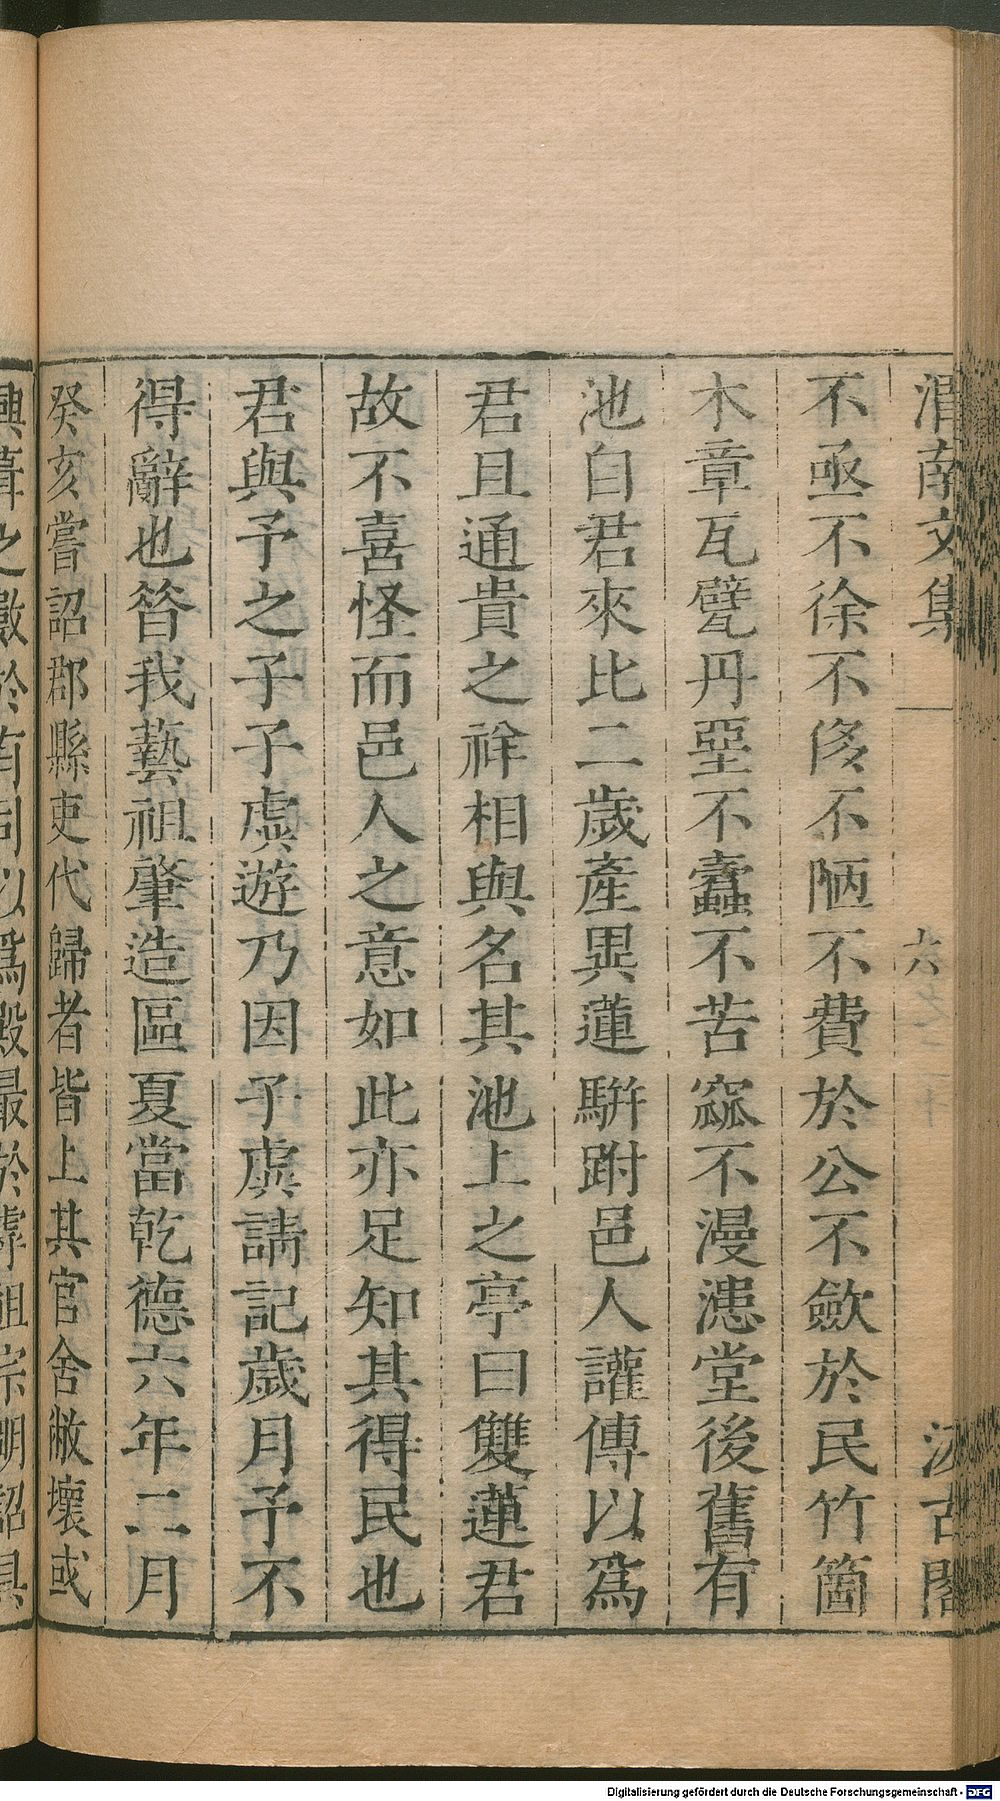 渭南文集 六 汲古閣
不亟不徐不侈不陋不費於公不斂於民竹箇
木章瓦甓丹堊不蠹不苦窳不漫漶堂後舊有
池自君來比二歲產異蓮駢跗邑人讙傳以爲
君且通貴之祥相與名其池上之亭曰雙蓮君
故不喜怪而邑人之意如此亦足知其得民也
君與予之子子虡遊乃因子虡請記歲月予不
得辭也昝我藝祖肇造區夏當乾德六年二月
癸亥嘗詔郡縣吏代歸者皆上其官舍敝壞或
興葺之數於有司以爲殿最於虖祖宗明詔具
Digitalisierung gefördert durch die Deutsche Forschungsgemeinschaft - DFG